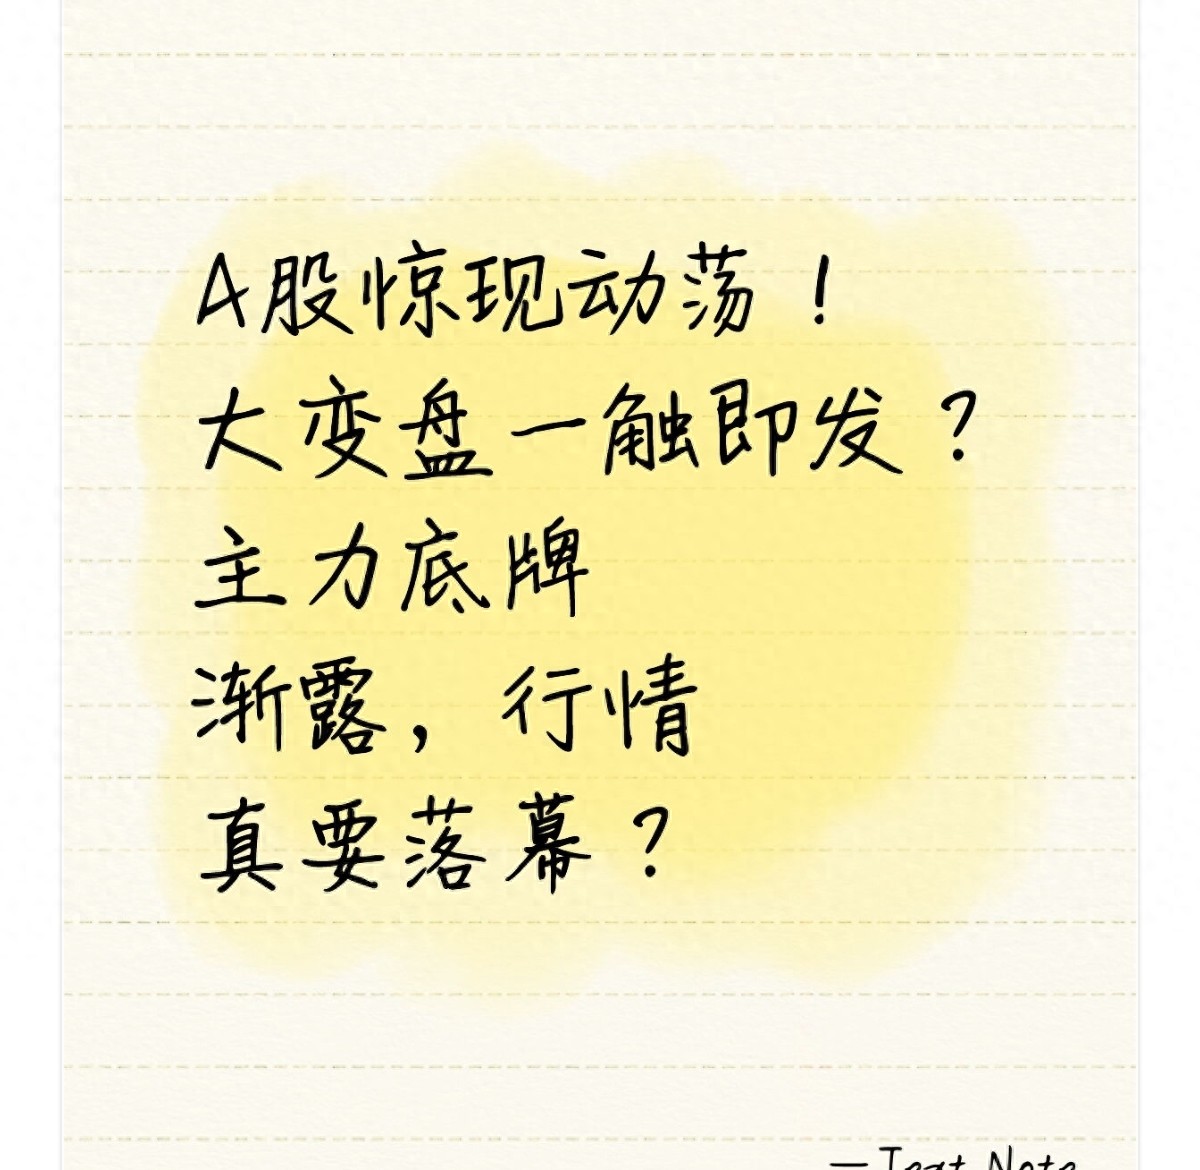 A股惊现动荡！
大变盘一触即发？
主力底牌
渐露，行情
真要落幕？
— Text Note